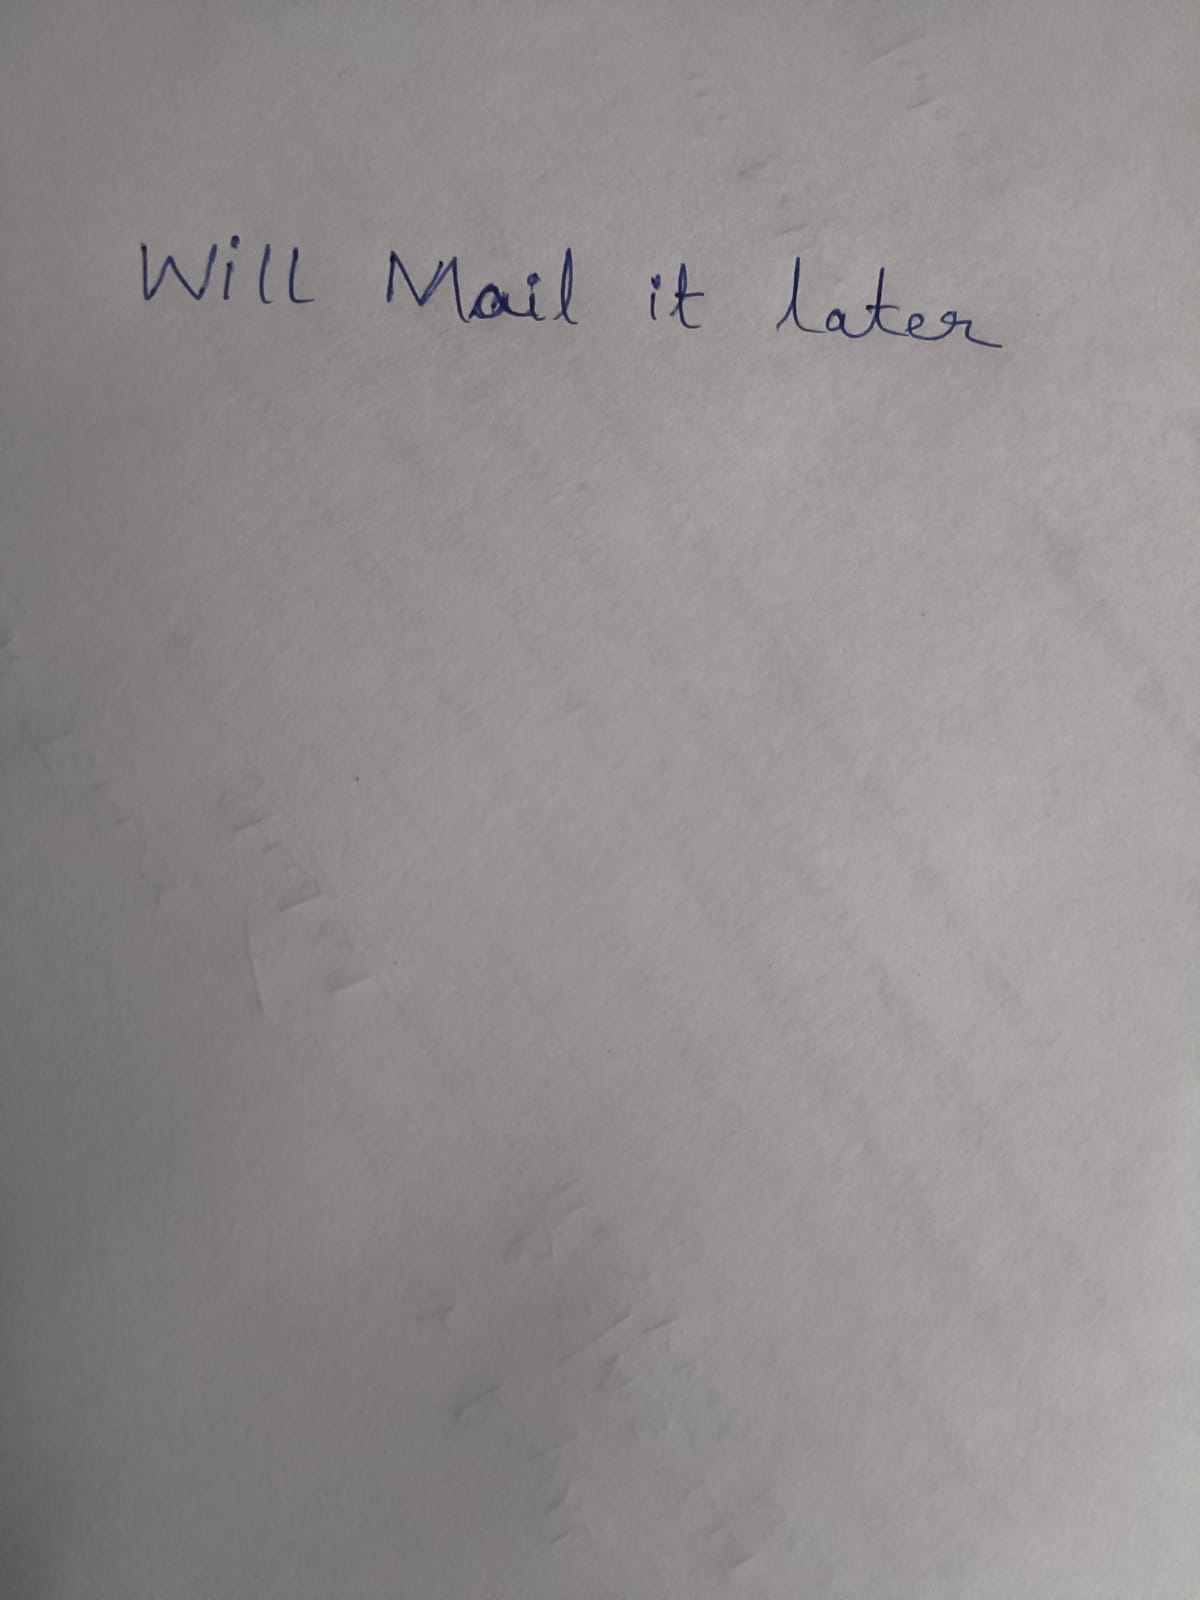 Will Mail it later